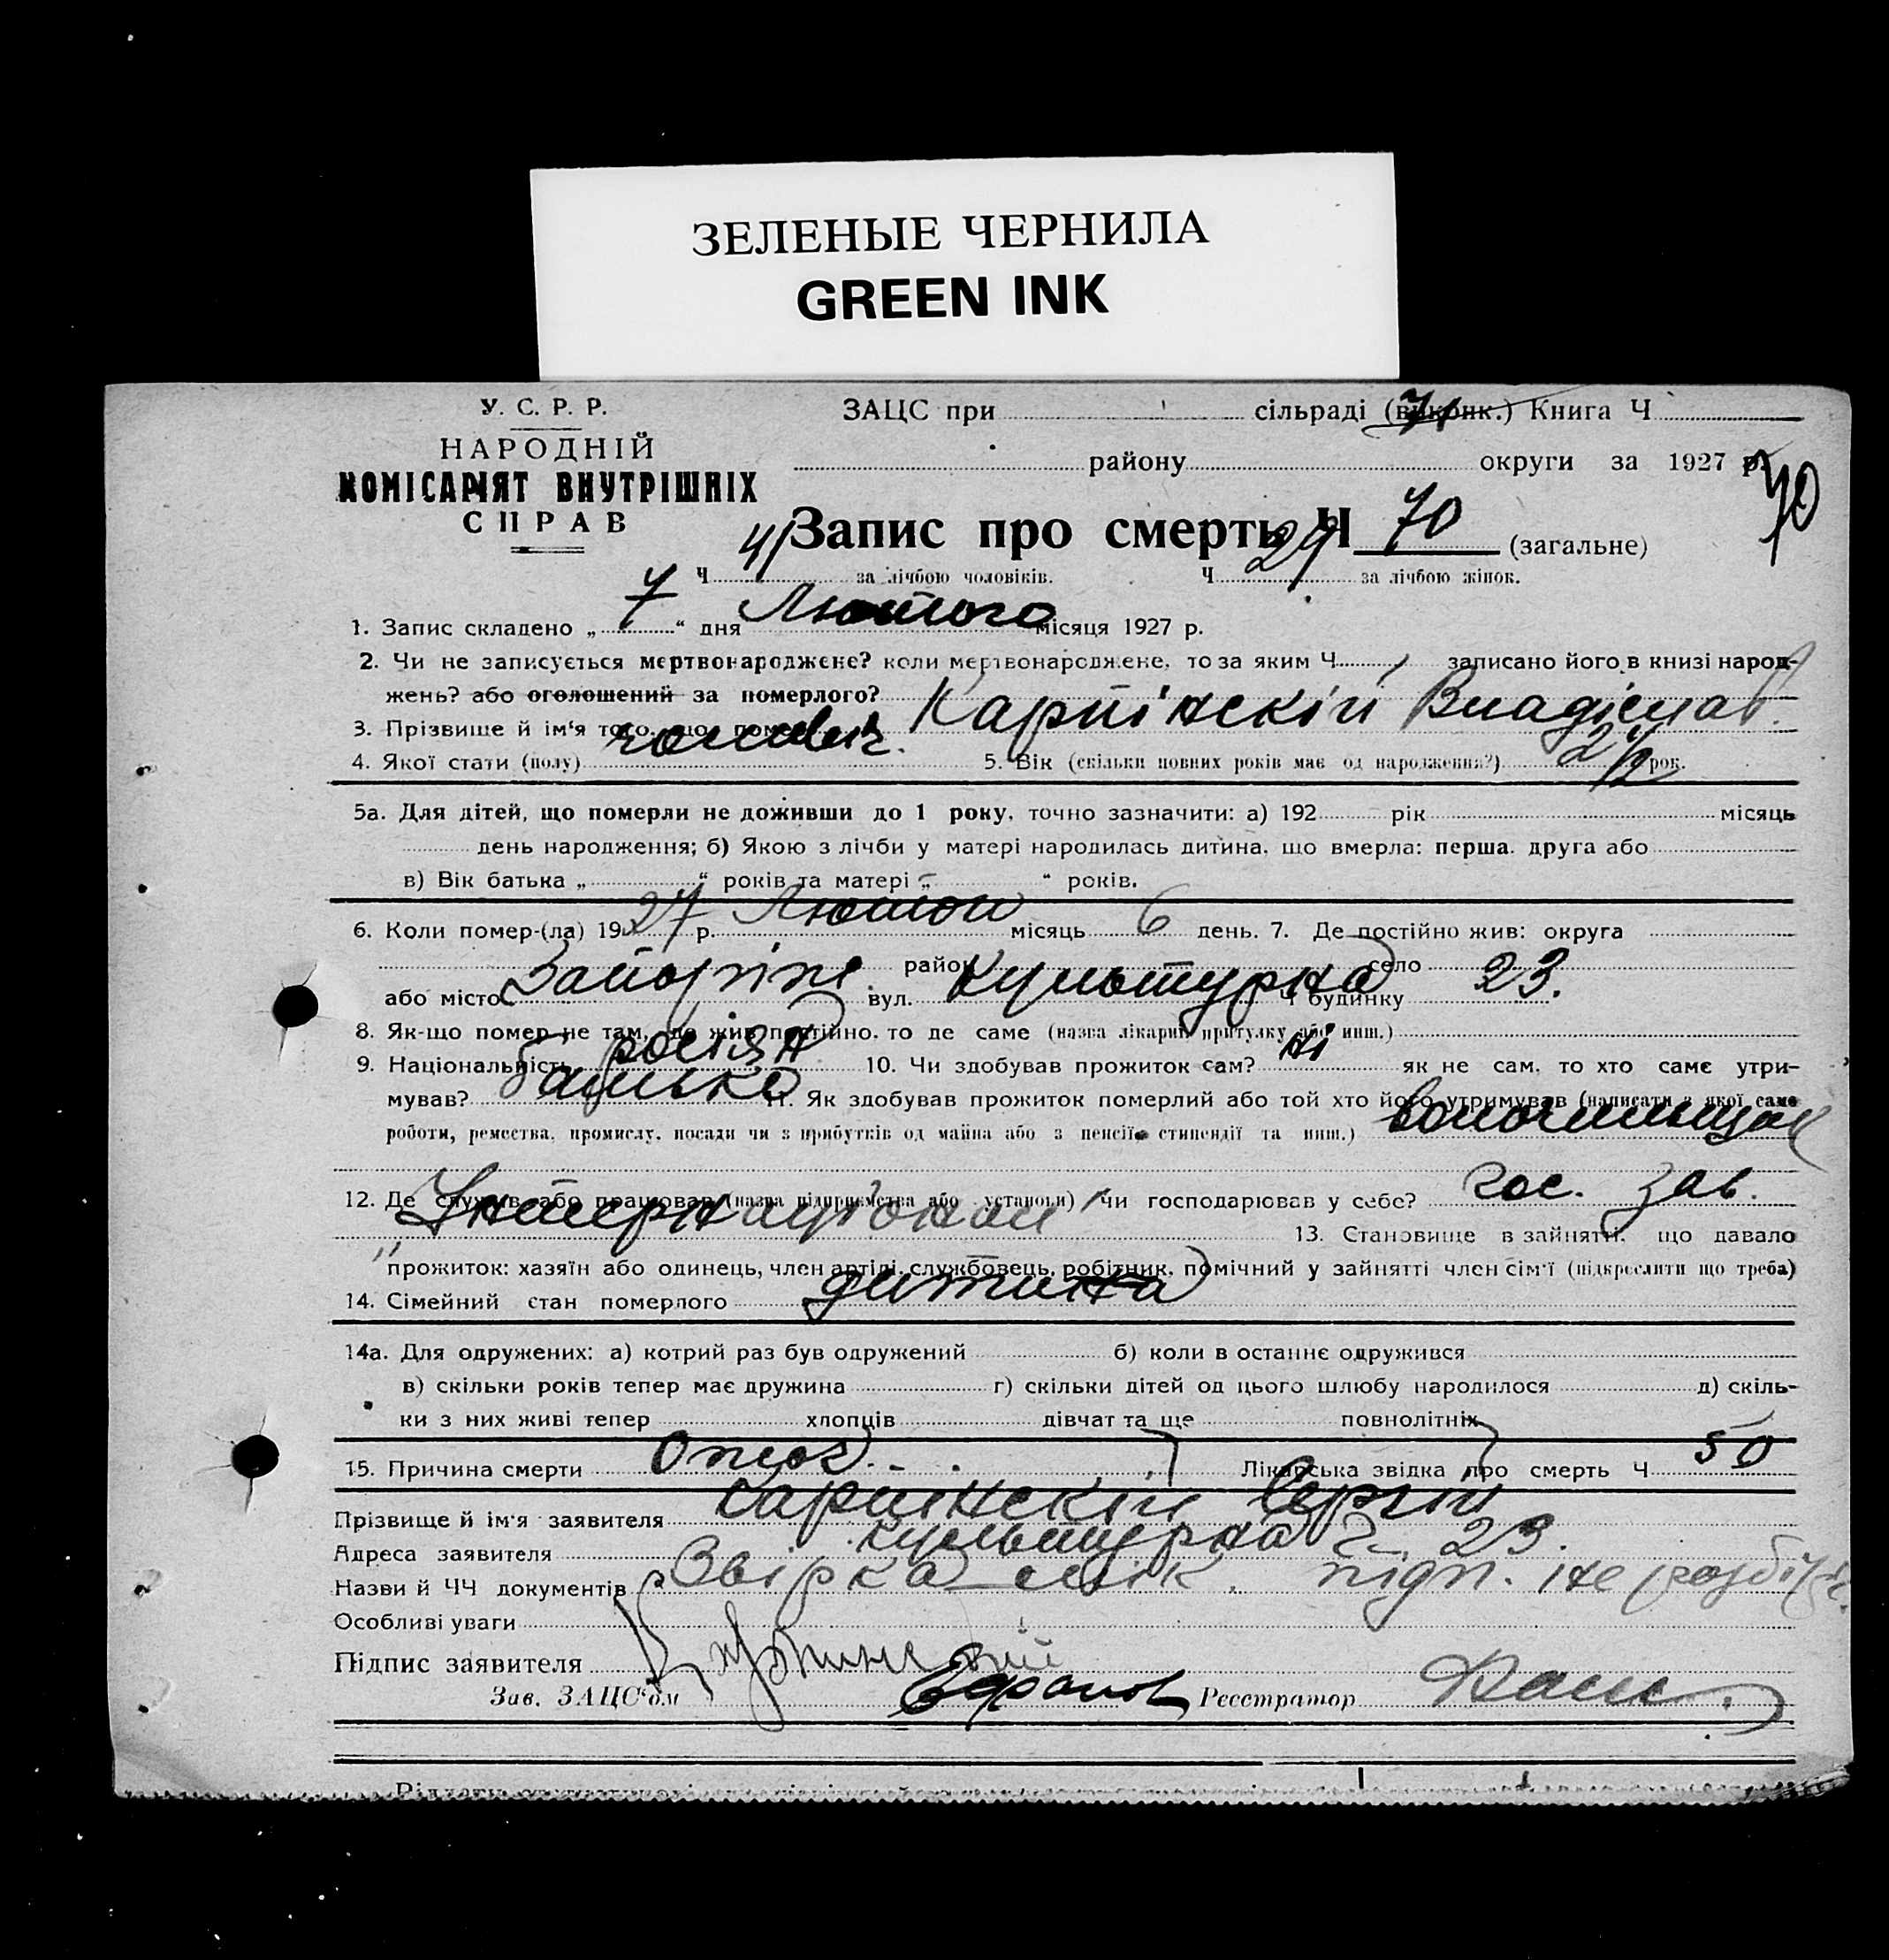 ЗЕЛЕНЫЕ ЧЕРНИЛА
GREEN INK
У. С. Р. Р.
НАРОДНІЙ
КОМІСАРІЯТ ВНУТРІШНІХ
СПРАВ
ЗАЦС при сільраді (виконк.) Книга Ч
району округи за 1927 р.
70
Запис про смерть Ч 70 (загальне)
Ч 41 за лічбою чоловіків. Ч 29 за лічбою жінок.
1. Запис складено „ 7 “ дня Лютого місяця 1927 р.
2. Чи не записується мертвонароджене? коли мертвонароджене, то за яким Ч. записано його в книзі народ-
жень? або оголошений за померлого?
3. Прізвище й ім'я того, що помер Карпінскій Владіслав
4. Якої стати (полу) чоловіч. 5. Вік (скільки повних років має од народження?) 2 1/2 рок.
5а. Для дітей, що померли не доживши до 1 року, точно зазначити: а) 192 рік місяць
день народження; б) Якою з лічби у матері народилась дитина, що вмерла: перша, друга або
в) Вік батька „ “ років та матері „ “ років.
6. Коли помер-(ла) 1927 р. Лютого місяць 6 день. 7. Де постійно жив: округа
район село
або місто Запоріжжє вул. Культурна Ч будинку 23.
8. Як-що помер не там, де жив постійно, то де саме (назва лікарні, притулку або инш.)
9. Національність росіян 10. Чи здобував прожиток сам? ні як не сам, то хто саме утри-
мував? батько 11. Як здобував прожиток померлий або той хто його утримував (написати з якої саме
роботи, ремества, промислу, посади чи з прибутків од майна або з пенсії, стипендії та инш.)
12. Де служив або працював (назва підприємства або установи) чи господарював у себе? гос. зав.
„Інтернаціонал“ 13. Становище в зайнятті, що давало
прожиток: хазяїн або одинець, член артілі, службовець, робітник, помічний у зайнятті член сім'ї (підкреслити що треба)
14. Сімейний стан померлого дитина
14а. Для одружених: а) котрий раз був одружений б) коли в останнє одружився
в) скільки років тепер має дружина г) скільки дітей од цього шлюбу народилося д) скіль-
ки з них живі тепер хлопців дівчат та ще повнолітніх
15. Причина смерти Ожог. Лікарська звідка про смерть Ч. 50
Прізвище й ім'я заявителя Карпінскій Сергій
Адреса заявителя Культурна 23.
Назви й ЧЧ документів Звірка підп. (не розбір.)
Особливі уваги
Підпис заявителя Карпинский
Зав. ЗАЦС'ом Реєстратор